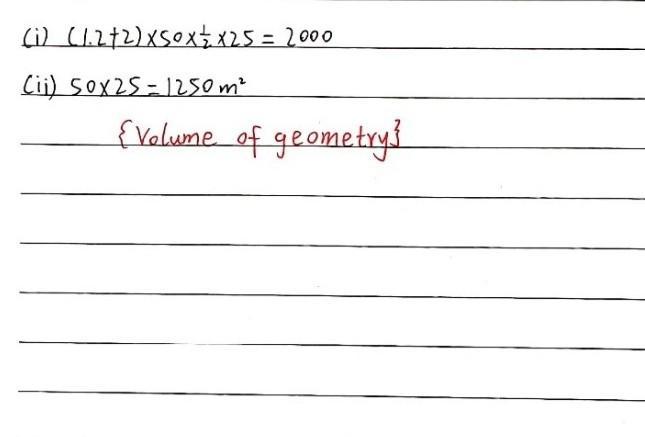 (i) (1.2+2)×50×½×25 = 2000
(ii) 50×25 = 1250 m²
{Volume of geometry}